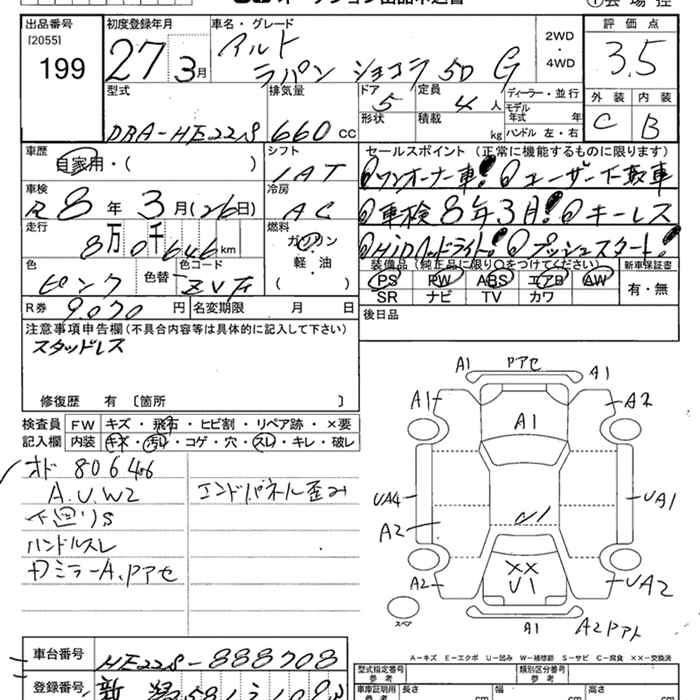 出品番号
[2055]
199
初度登録年月
27 3月
車名・グレード
アルト
ラパン ショコラ 5D G
2WD
・
4WD
評価点
3.5
外装 内装
C B
型式
DBA-HE22S
排気量
660 CC
ドア
5
形状
定員
4 人
積載
kg
ディーラー・並行
モデル
年式 年
ハンドル 左・右
車歴
自家用・( )
シフト
IAT
車検
R 8 年 3 月(26日)
冷房
AC
走行
8万0千646km
燃料
ガソリン
軽・油
( )
色
ピンク
色替
色コード
ZVF
R券 9.070 円
名変期限 月 日
セールスポイント (正常に機能するものに限ります)
ワンオーナー車! ユーザー下取車
車検8年3月! キーレス
HIDヘッドライト! プッシュスタート!
装備品 (純正品に限り○をつけてください)
PS PW ABS エアB AW
SR ナビ TV カワ
新車保証書
有・無
後日品
注意事項申告欄(不具合内容等は具体的に記入して下さい)
スタッドレス
修復歴 有 〔箇所 〕
検査員
記入欄
FW キズ・飛石・ヒビ割・リペア跡・×要
内装 キズ・汚れ・コゲ・穴・スレ・キレ・破レ
オド 80646
A.U.W2
下回りS
ハンドルスレ
エンドパネル歪み
A1 Pアセ A1
A1 A2
A1
UA4 UA1
A2
U1
××
U1
A2 UA2
A1
スペア
A-キズ E-エクボ U-凹み W-補修跡 S-サビ C-腐食 ××-交換済
車台番号 HE22S-888708
登録番号
型式指定番号
参考
類別区分番号
参考
車庫証明用
参考
長さ cm
幅 cm
高さ cm